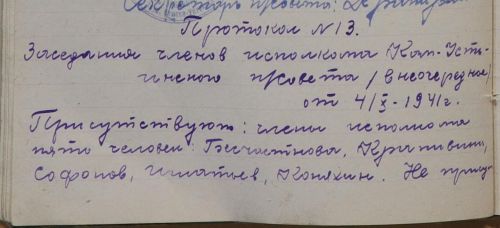 Секретарь с/совета:
Протокол № 13.
Заседания членов исполкома Кам-Уст-
инского п/совета /внеочередное/
от 4/X-1941г.
Присутствуют: члены исполкома
пять человек: Бесчастнова, Крапивин,
Софонов, Игнатьев, Конякин. Не прису-